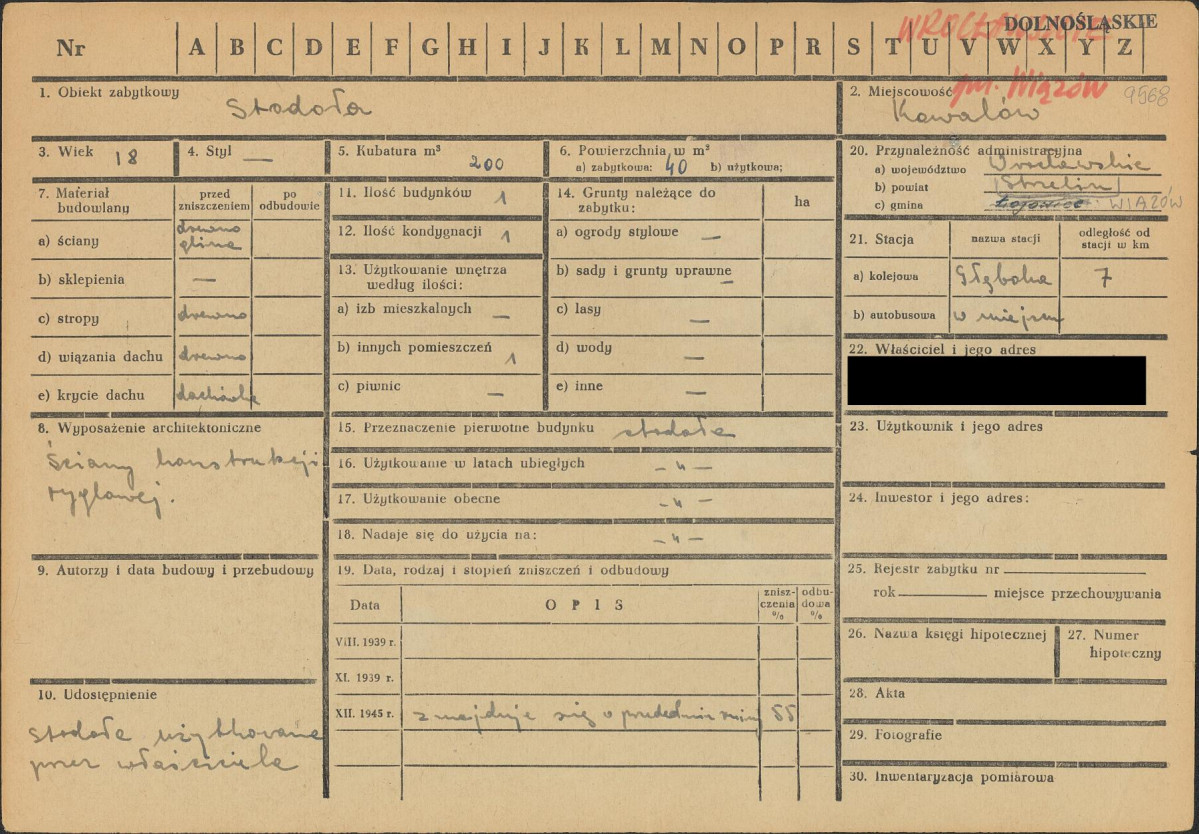 DOLNOŚLĄSKIE
WROCŁAWSKIE
Nr A B C D E F G H I J K L M N O P R S T U V W X Y Z
gm. Wiązów 9568
1. Obiekt zabytkowy
Stodoła
2. Miejscowość
Kowalów
3. Wiek 18
4. Styl —
5. Kubatura m³ 200
6. Powierzchnia w m²
a) zabytkowa: 40 b) użytkowa:
20. Przynależność administracyjna
a) województwo Wrocławskie
b) powiat Strzelin
c) gmina WIĄZÓW
7. Materiał budowlany
przed zniszczeniem
po odbudowie
a) ściany drewno glina
b) sklepienia —
c) stropy drewno
d) wiązania dachu drewno
e) krycie dachu dachówka
11. Ilość budynków 1
12. Ilość kondygnacji 1
13. Użytkowanie wnętrza według ilości:
a) izb mieszkalnych —
b) innych pomieszczeń 1
c) piwnic —
14. Grunty należące do zabytku: ha
a) ogrody stylowe —
b) sady i grunty uprawne —
c) lasy —
d) wody —
e) inne —
21. Stacja
nazwa stacji
odległość od stacji w km
a) kolejowa Głęboka 7
b) autobusowa w miejscu
22. Właściciel i jego adres
8. Wyposażenie architektoniczne
Ściany konstrukcji
ryglowej.
15. Przeznaczenie pierwotne budynku stodoła
16. Użytkowanie w latach ubiegłych – „ –
17. Użytkowanie obecne – „ –
18. Nadaje się do użycia na: – „ –
23. Użytkownik i jego adres
24. Inwestor i jego adres:
9. Autorzy i data budowy i przebudowy
19. Data, rodzaj i stopień zniszczeń i odbudowy
Data
OPIS
znisz-
czenia
%
odbu-
dowa
%
VIII. 1939 r.
XI. 1939 r.
XII. 1945 r. znajduje się w 55
25. Rejestr zabytku nr
rok miejsce przechowywania
26. Nazwa księgi hipotecznej
27. Numer hipoteczny
28. Akta
29. Fotografie
30. Inwentaryzacja pomiarowa
10. Udostępnienie
stodoła użytkowana
przez właściciela